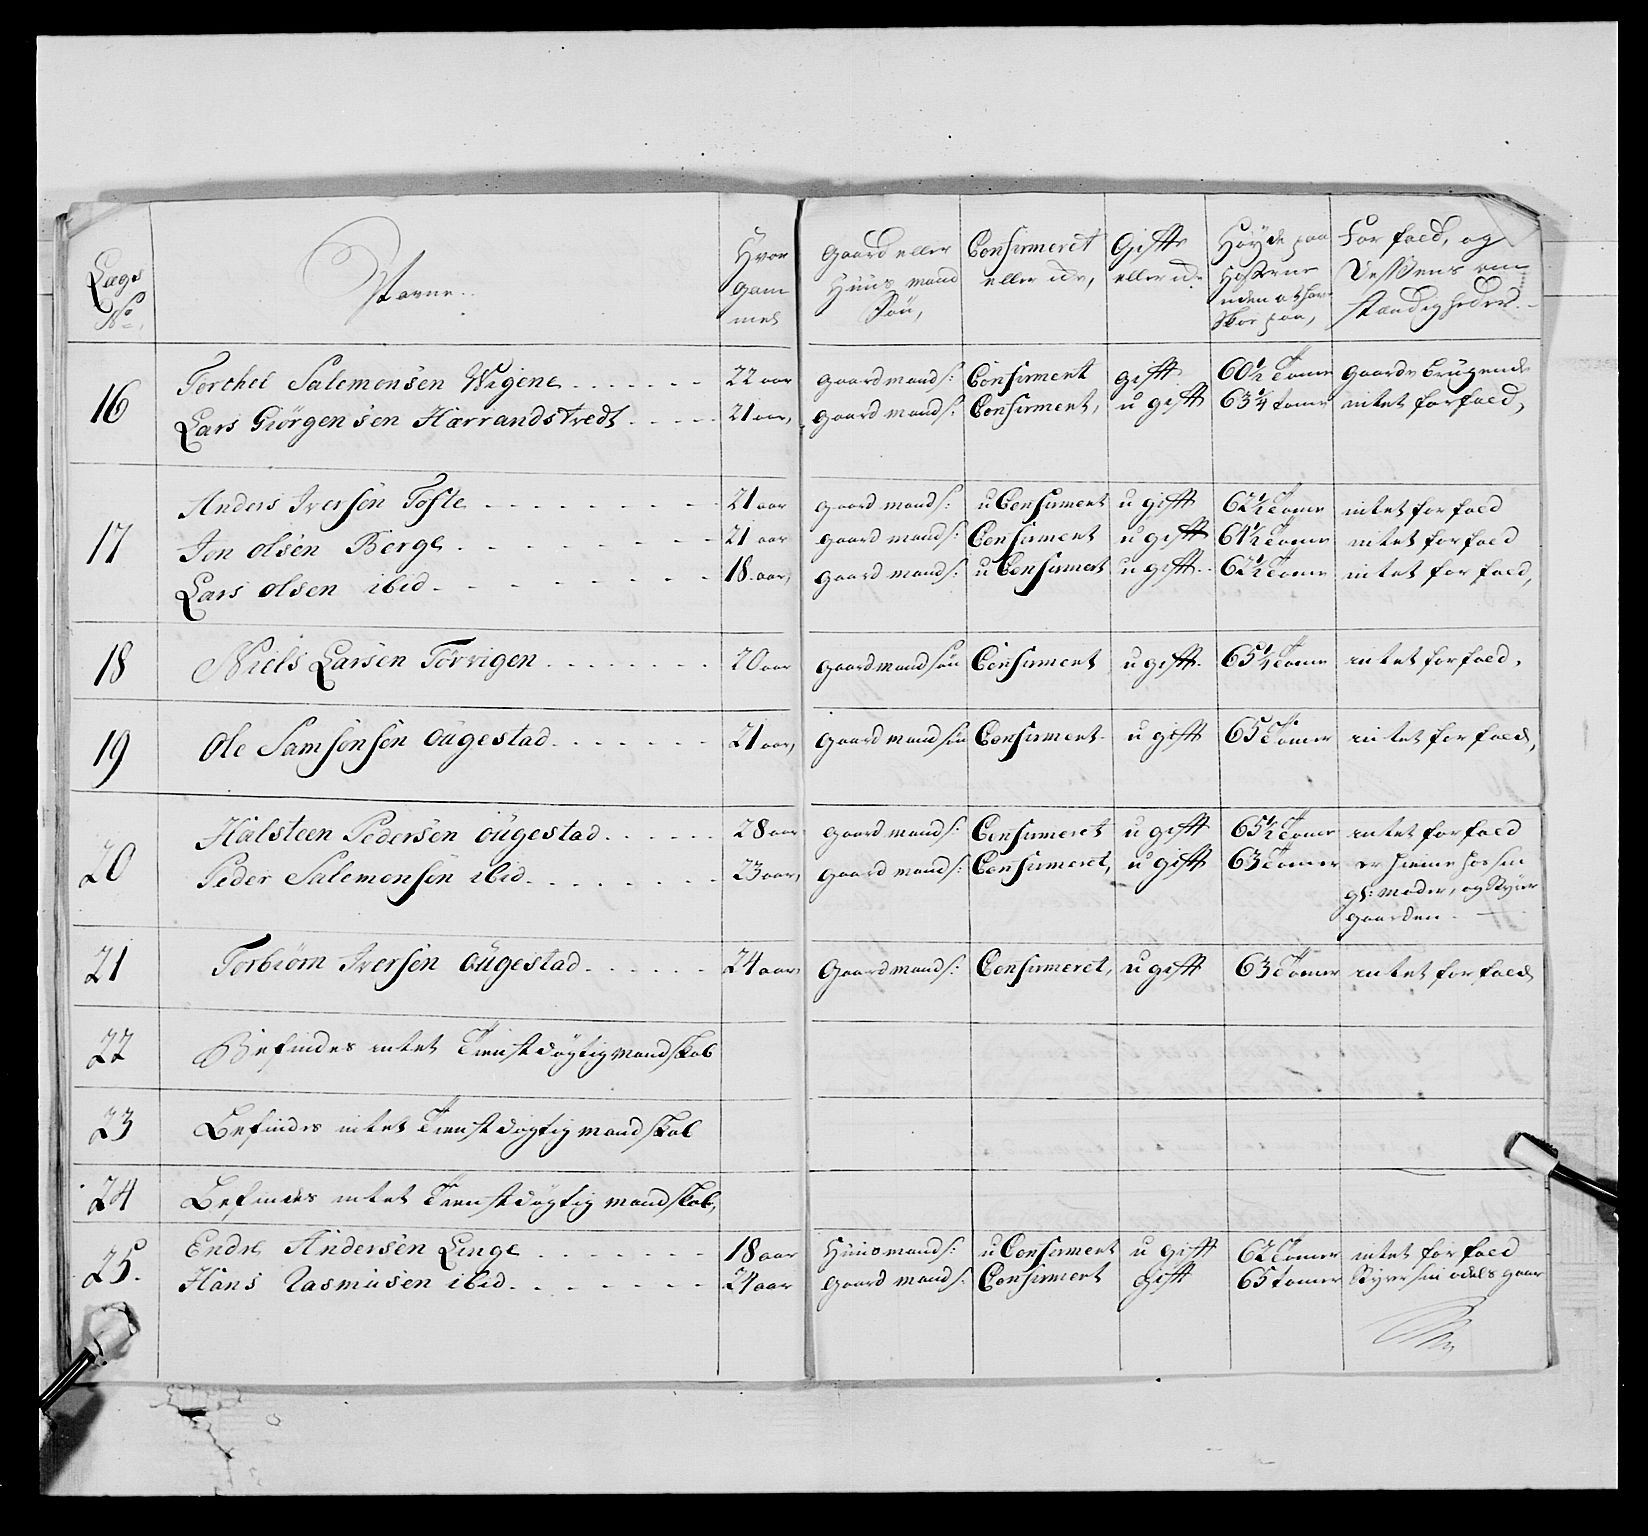 Lægs No.
Navne.
Hvor gammel
Gaard eller Huus mands Søn,
Confirmeret eller ide,
Gifte eller ide
Høyde paa Høsterne uden at have Skoe paa,
Forfald, og Dessens omstændigheder.
16 Torchel Salemonsen Wigene 22 aar gaardmands: Confirment gifft 60½ Tomr gaards brugende
Lars Giörgensen Harrandstvedt 21 aar, gaardmands: Confirment, ugifft 63¼ tomr intet forfald,
17 Anders Iversen Tofte 21 aar gaardmands: uConfirment ugifft 62½ Tomr intet forfald
Jon olsen Berge 21 aar gaardmands: Confirment ugifft 61½ Tomr intet forfald
Lars olsen ibid 18 aar, gaardmands: uConfirment ugifft 62½ Tomr intet forfald,
18 Niels Larsen Törvigen 20 aar gaardmandsön Confirment ugifft 65½ Tomr intet forfald,
19 Ole Samsonsen öugestad 21 aar, gaardmandsön Confirment ugifft 65 Tomer intet forfald,
20 Halsteen Pedersen öugestad 28 aar gaardmands: Confirmeret ugifft 65½ Tomr intet forfald
Peder Salemonsen ibid 23 aar, gaardmands: Confirmeret, ugifft 63 Tomer er hieme hos sin
gl: moder, og Styrer
gaarden.
21 Torbiörn Iversen öugestad 24 aar, Gaardmands: Confirmeret, ugifft 63 Tomer intet forfald
22 Befindes intet Tienstdögtig mandskab
23 Befindes intet Tienstdögtig mandskab
24 Befindes intet Tienstdögtig mandskab,
25. Endre Andersen Linge 18 aar Huusmands: uConfirment ugifft 62 Tomer intet forfald
Hans Rasmusen ibid 24 aar gaardmands: Confirment Gifft 65 tomer Styrer sin odels gaar